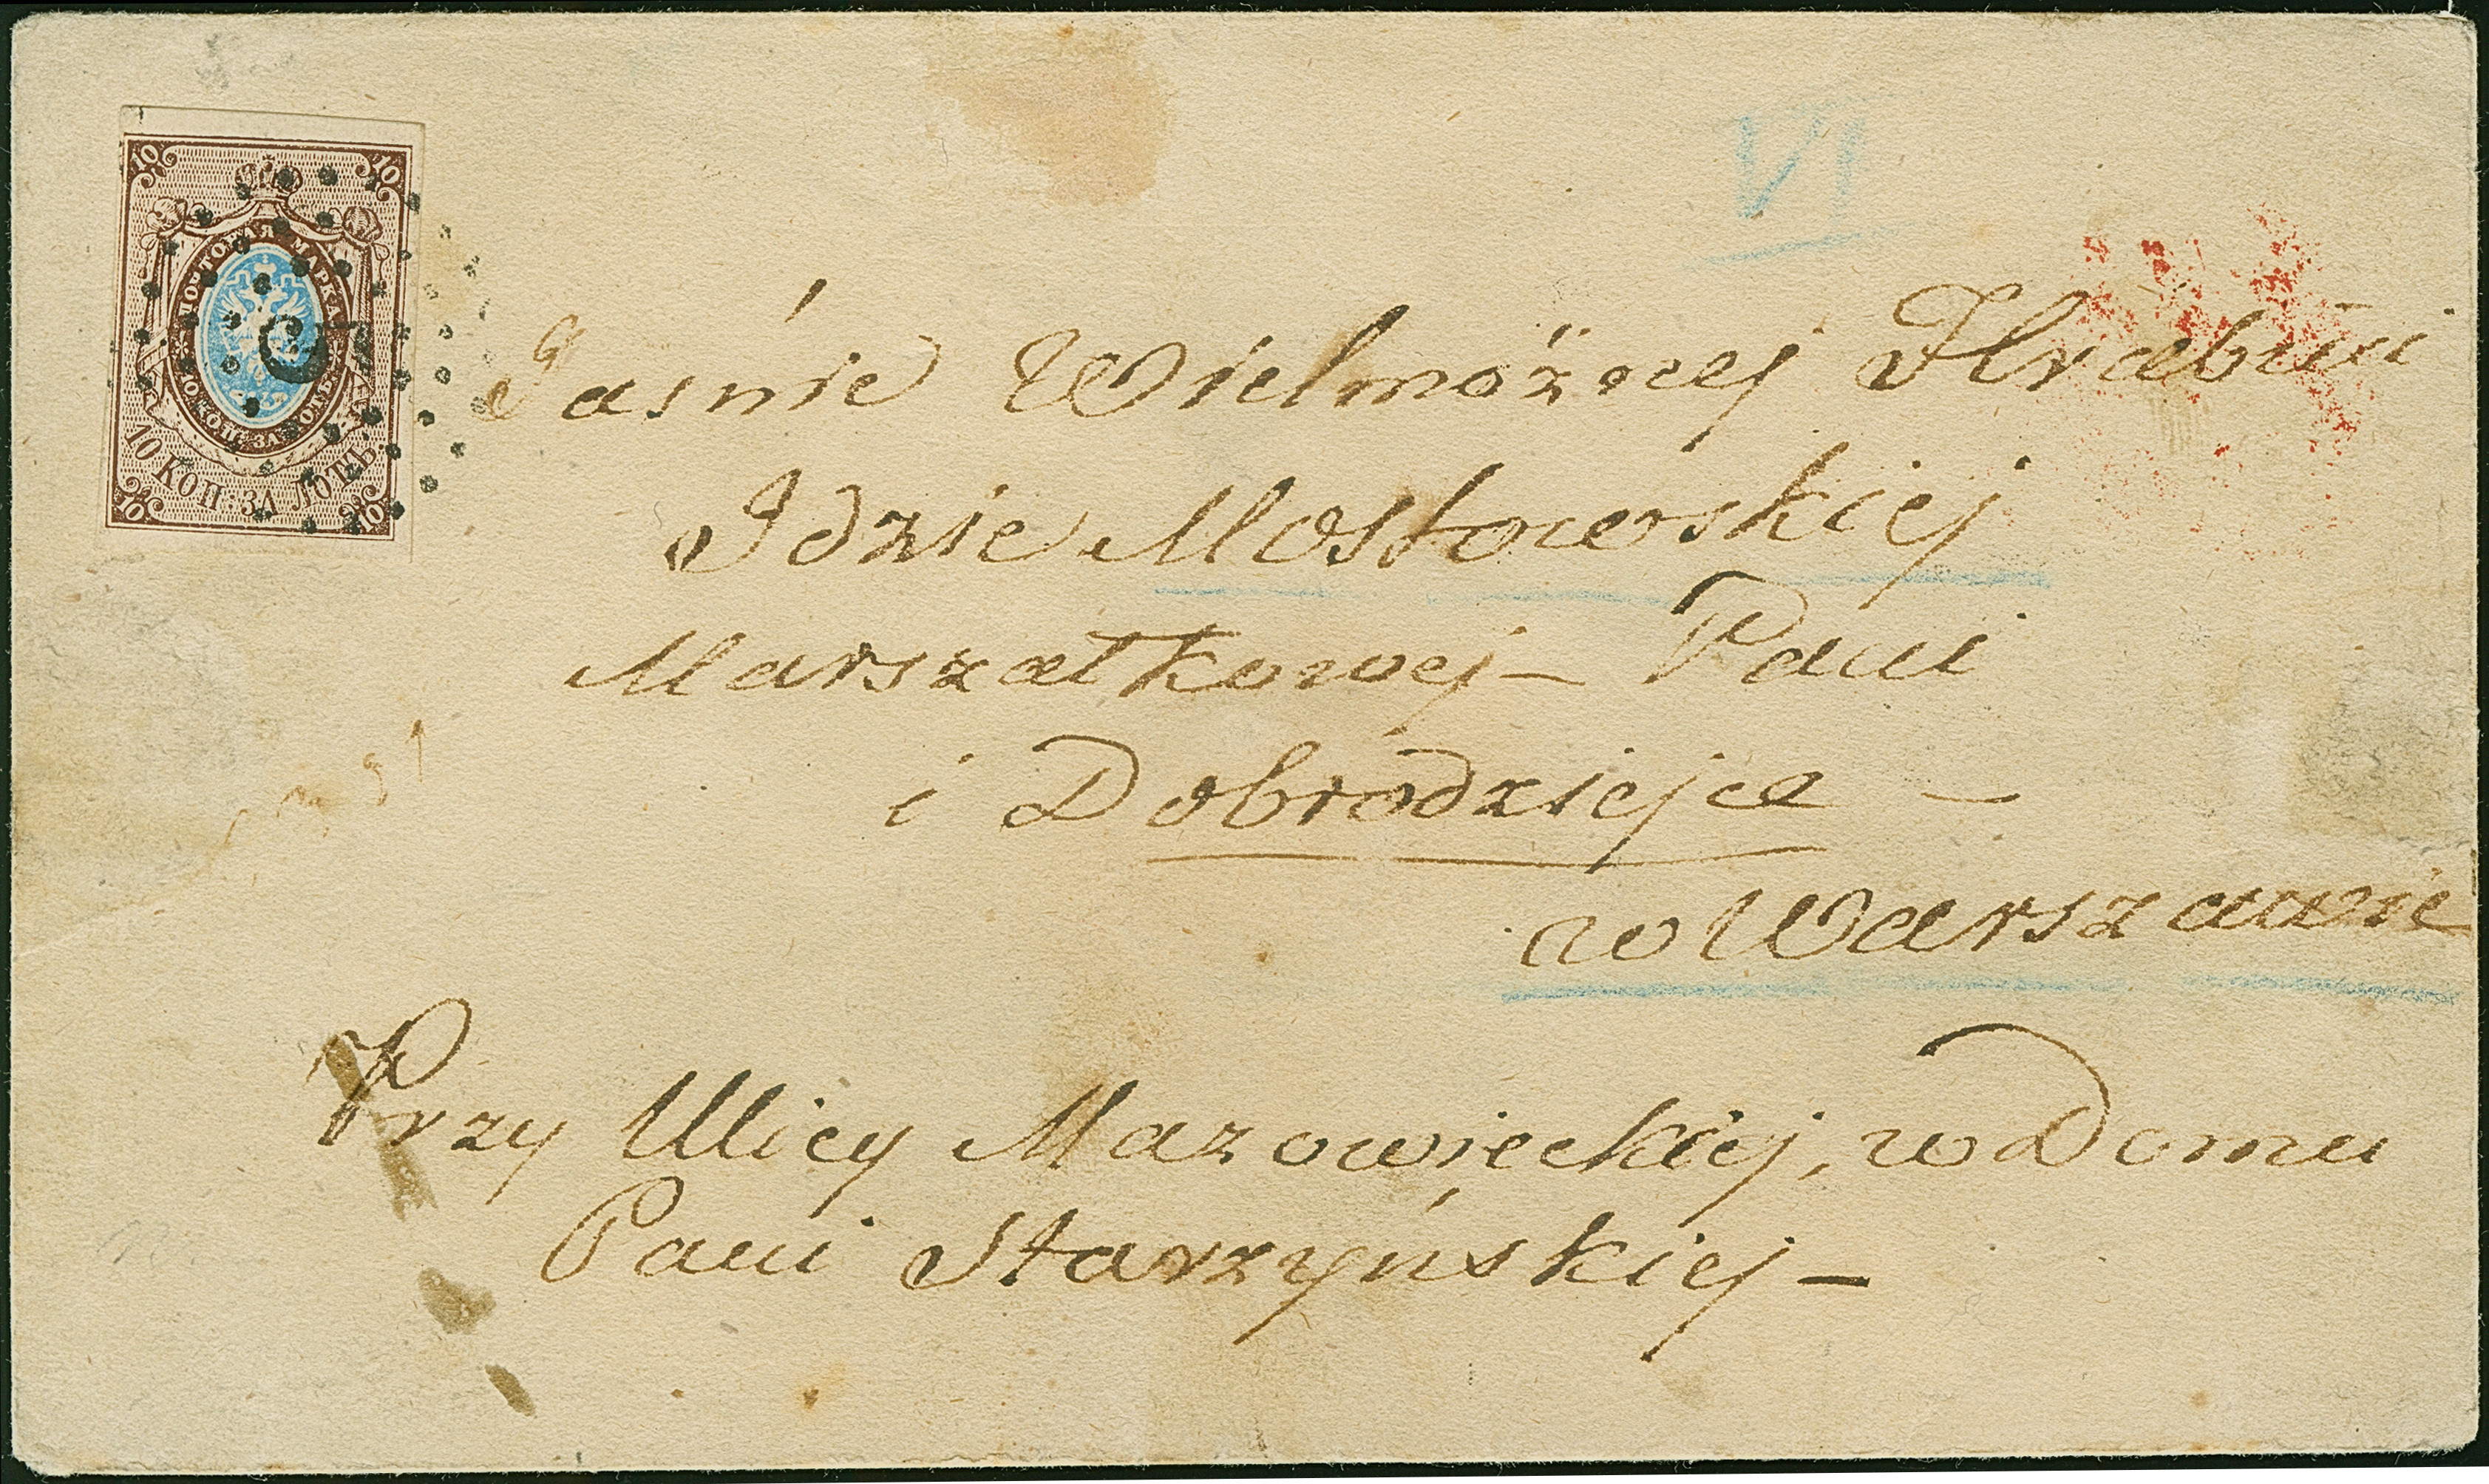 10 10
ПОЧТОВАЯ МАРКА
10 КОП. ЗА ЛОТЪ
10 КОП: ЗА ЛОТЪ.
10 10
VI
Jaśnie Wielmożnej Hrabini
Idzie Mostowskiej
Marszałkowej - Pani
i Dobrodziejce -
w Warszawie
Przy Ulicy Mazowieckiej, w Domu
Pani Starzyńskiej -